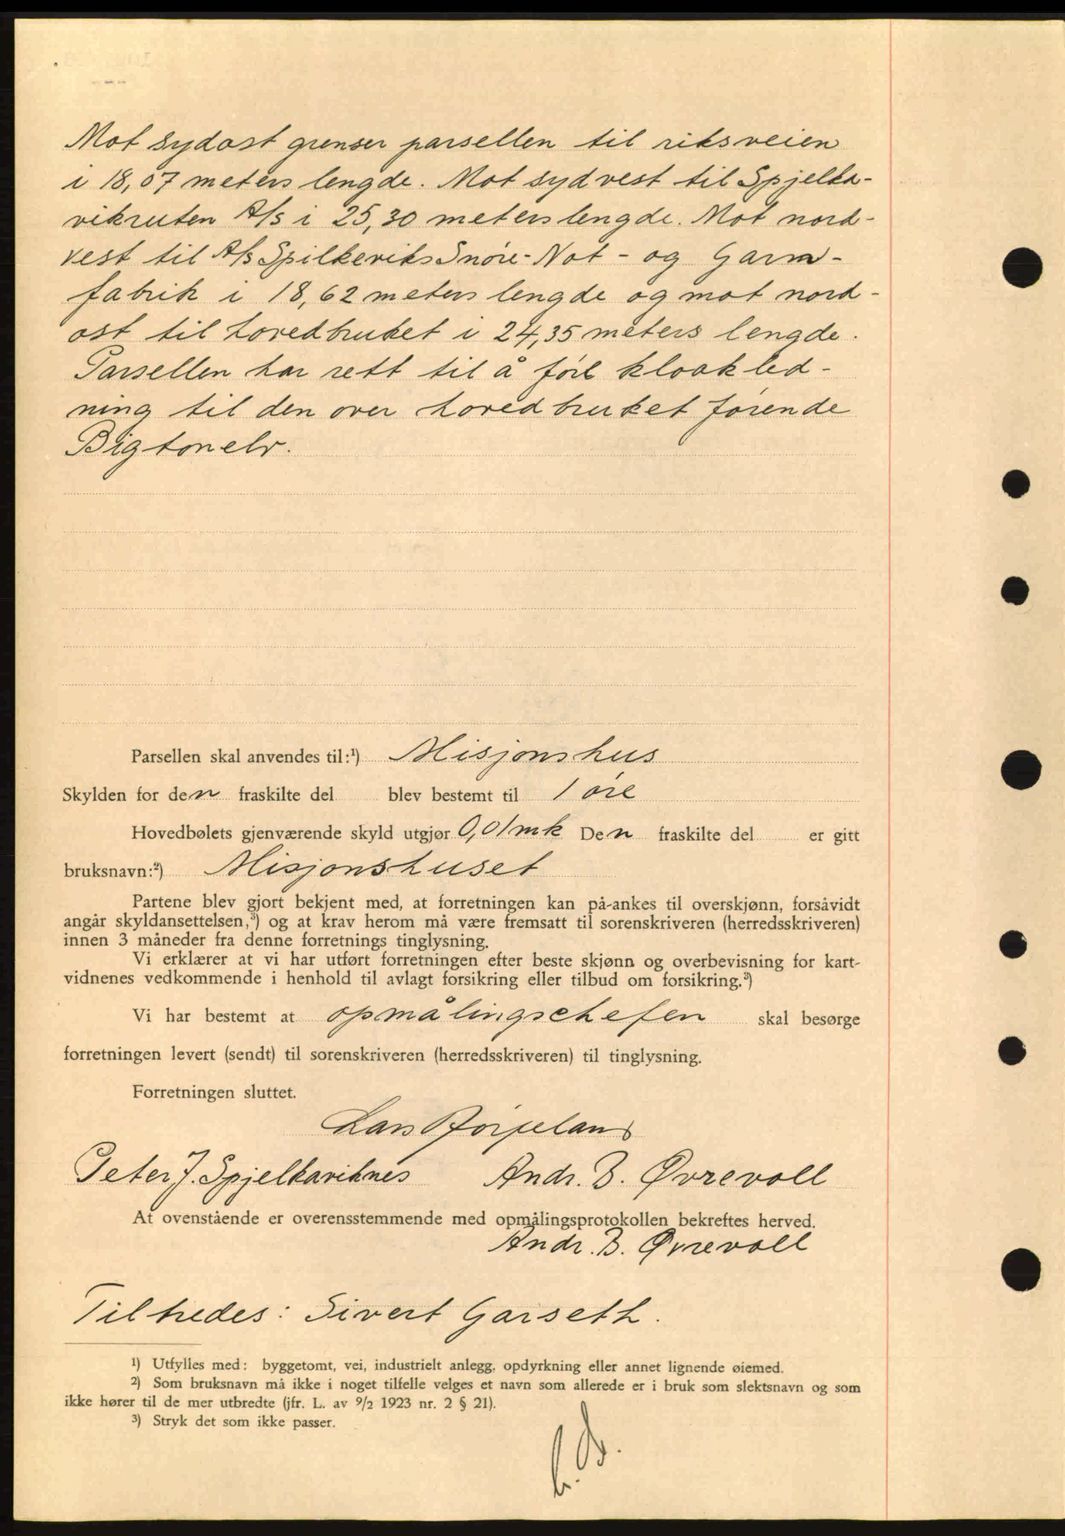 Mot sydost grenser parsellen til riksveien
i 18,07 meters lengde. Mot sydvest til Spjelka-
vikruten A/S i 25,30 meters lengde. Mot nord-
vest til A/S Spilkeviks Snøre- Not - og Garn-
fabrik i 18,62 meters lengde og mot nord-
ost til hovedbruket i 24,35 meters lengde.
Parsellen har rett til å føre kloakled-
ning til den over hovedbruket førende
elv.
Parsellen skal anvendes til:¹) Misjonshus
Skylden for den fraskilte del blev bestemt til 1 øre
Hovedbølets gjenværende skyld utgjør 0,01 mk Den fraskilte del er gitt
bruksnavn:²) Misjonshuset
Partene blev gjort bekjent med, at forretningen kan på-ankes til overskjønn, forsåvidt
angår skyldansettelsen,³) og at krav herom må være fremsatt til sorenskriveren (herredsskriveren)
innen 3 måneder fra denne forretnings tinglysning.
Vi erklærer at vi har utført forretningen efter beste skjønn og overbevisning for kart-
vidnenes vedkommende i henhold til avlagt forsikring eller tilbud om forsikring.³)
Vi har bestemt at opmålingschefen skal besørge
forretningen levert (sendt) til sorenskriveren (herredsskriveren) til tinglysning.
Forretningen sluttet.
Lars Jørpeland
Peter J. Spjelkaviknes Andr. B. Øvrevoll
At ovenstående er overensstemmende med opmålingsprotokollen bekreftes herved.
Andr. B. Øvrevoll
Tiltredes: Sivert Garseth.
¹) Utfylles med: byggetomt, vei, industrielt anlegg, opdyrkning eller annet lignende øiemed.
²) Som bruksnavn må ikke i noget tilfelle velges et navn som allerede er i bruk som slektsnavn og som
ikke hører til de mer utbredte (jfr. L. av 9/2 1923 nr. 2 § 21).
³) Stryk det som ikke passer.